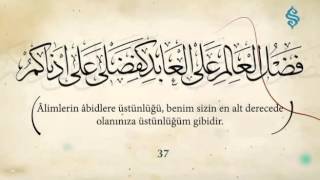 فَضْلُ الْعَالِمِ عَلَى الْعَابِدِ كَفَضْلِي عَلَى أَدْنَاكُمْ
Âlimlerin âbidlere üstünlüğü, benim sizin en alt derecede
olanınıza üstünlüğüm gibidir.
37